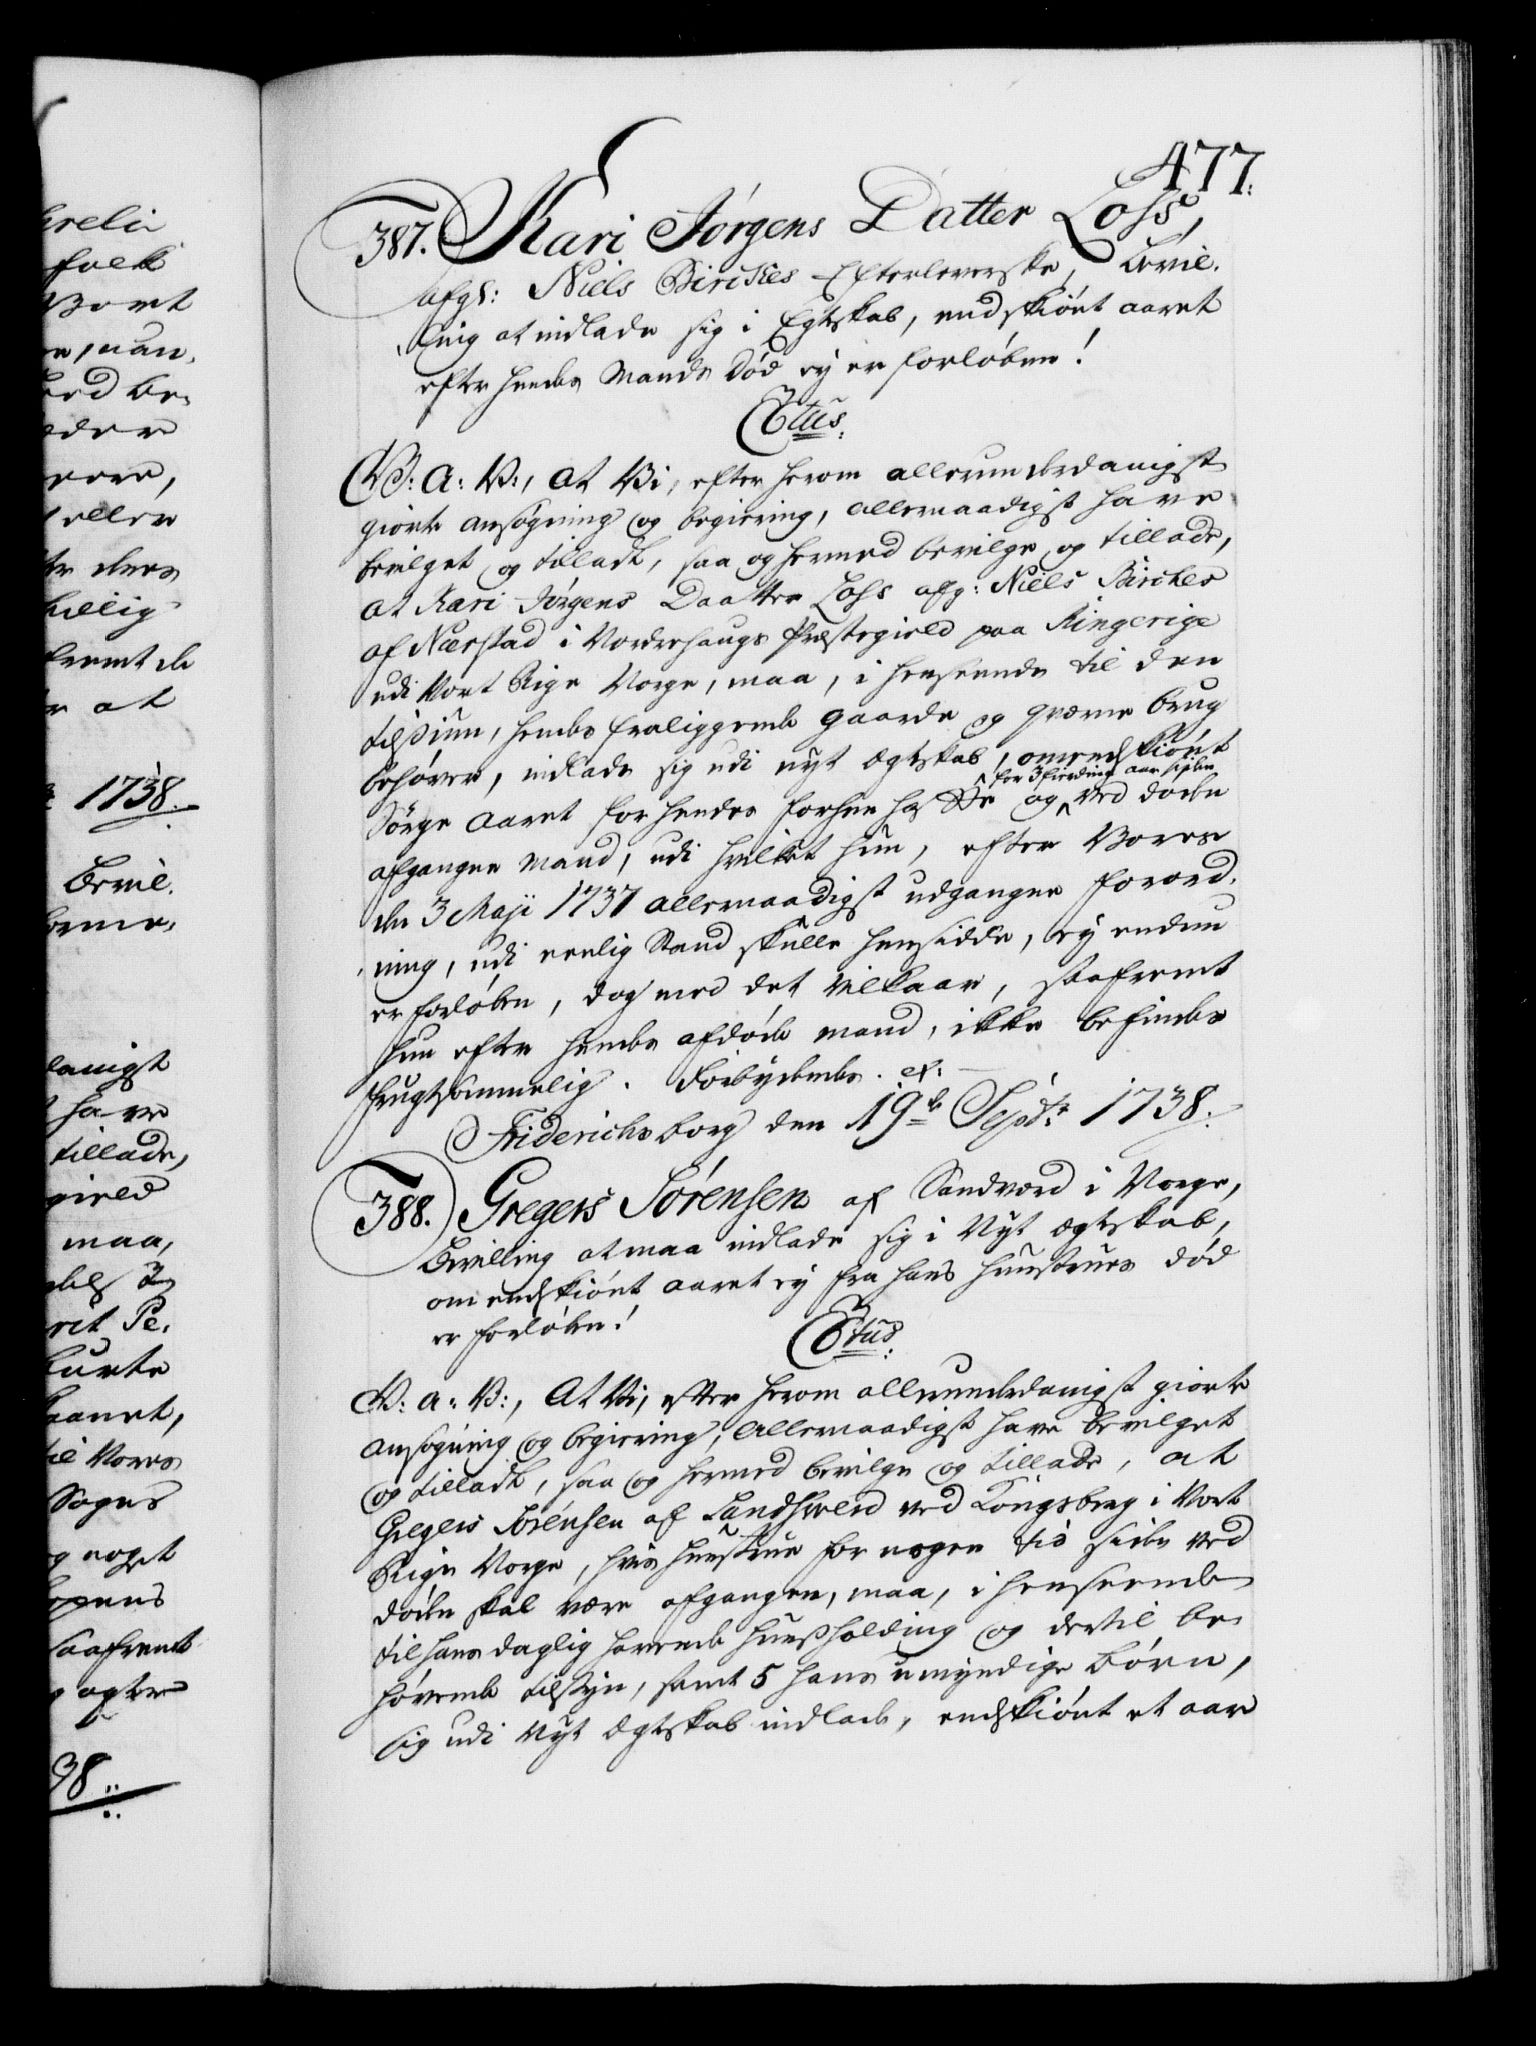 477.
387. Kari Jørgens Datter Loss,
afgl: Niels Birches Efterleverske, Bevil-
ling at indlade sig i Egteskab, endskiønt aaret
efter hendes Mands Død ey er forløben!
Ctus.
V: A: V:, At Vi, efter herom allerunderdanigst
giorte ansøgning og begiering, allernaadigst have
bevilget og tilladt, saa og hermed bevilge og tillade,
at Kari Jørgens Daatter Loss afg: Niels Birches
af Nærstad i Norderhaugs Præstegield paa Ringerige
udi Vort Rige Norge, maa, i henseende til den
tilsiun, hendes fraliggende gaarde og qværne brug
behøver, indlade sig udi nyt Ægteskab, omendskiønt
Sørge Aaret for hendes forhen havte og ved døden
for 3 fierding aar siden
afgangne Mand, udi hvilket hun, efter Vores
den 3 Maji 1737 allernaadigst udgangne Forord-
ning, udi eenlig Stand skulle hensidde, ey endnu
er forløben, dog med det vilkaar, saafremt
hun efter hendes afdøde mand, ikke befindes
frugtsommelig. Forbydendes. et:
Friderichsborg den 19de Septr 1738.
388. Gregers Sørensen af Sandvord i Norge,
Bevilling at maa indlade sig i Nyt Ægteskab,
om endskiønt aaret ey fra hans huustrues død
er forløben!
Ctus.
V: A: V:, At Vi, efter herom allerunderdanigst giorte
ansøgning og begiering, allernaadigst have bevilget
og tilladt, saa og hermed bevilge og tillade, at
Gregers Sørensen af Sandsværd ved Kongsberg i Vort
Rige Norge, hvis huustrue for nogen tid siden ved
døden skal være afgangen, maa, i henseende
til hans daglig havende huusholding og dertil be-
høvende tilsyn, samt 5 hans umyndige børn,
sig udi Nyt Ægteskab indlade, endskiønt et aar